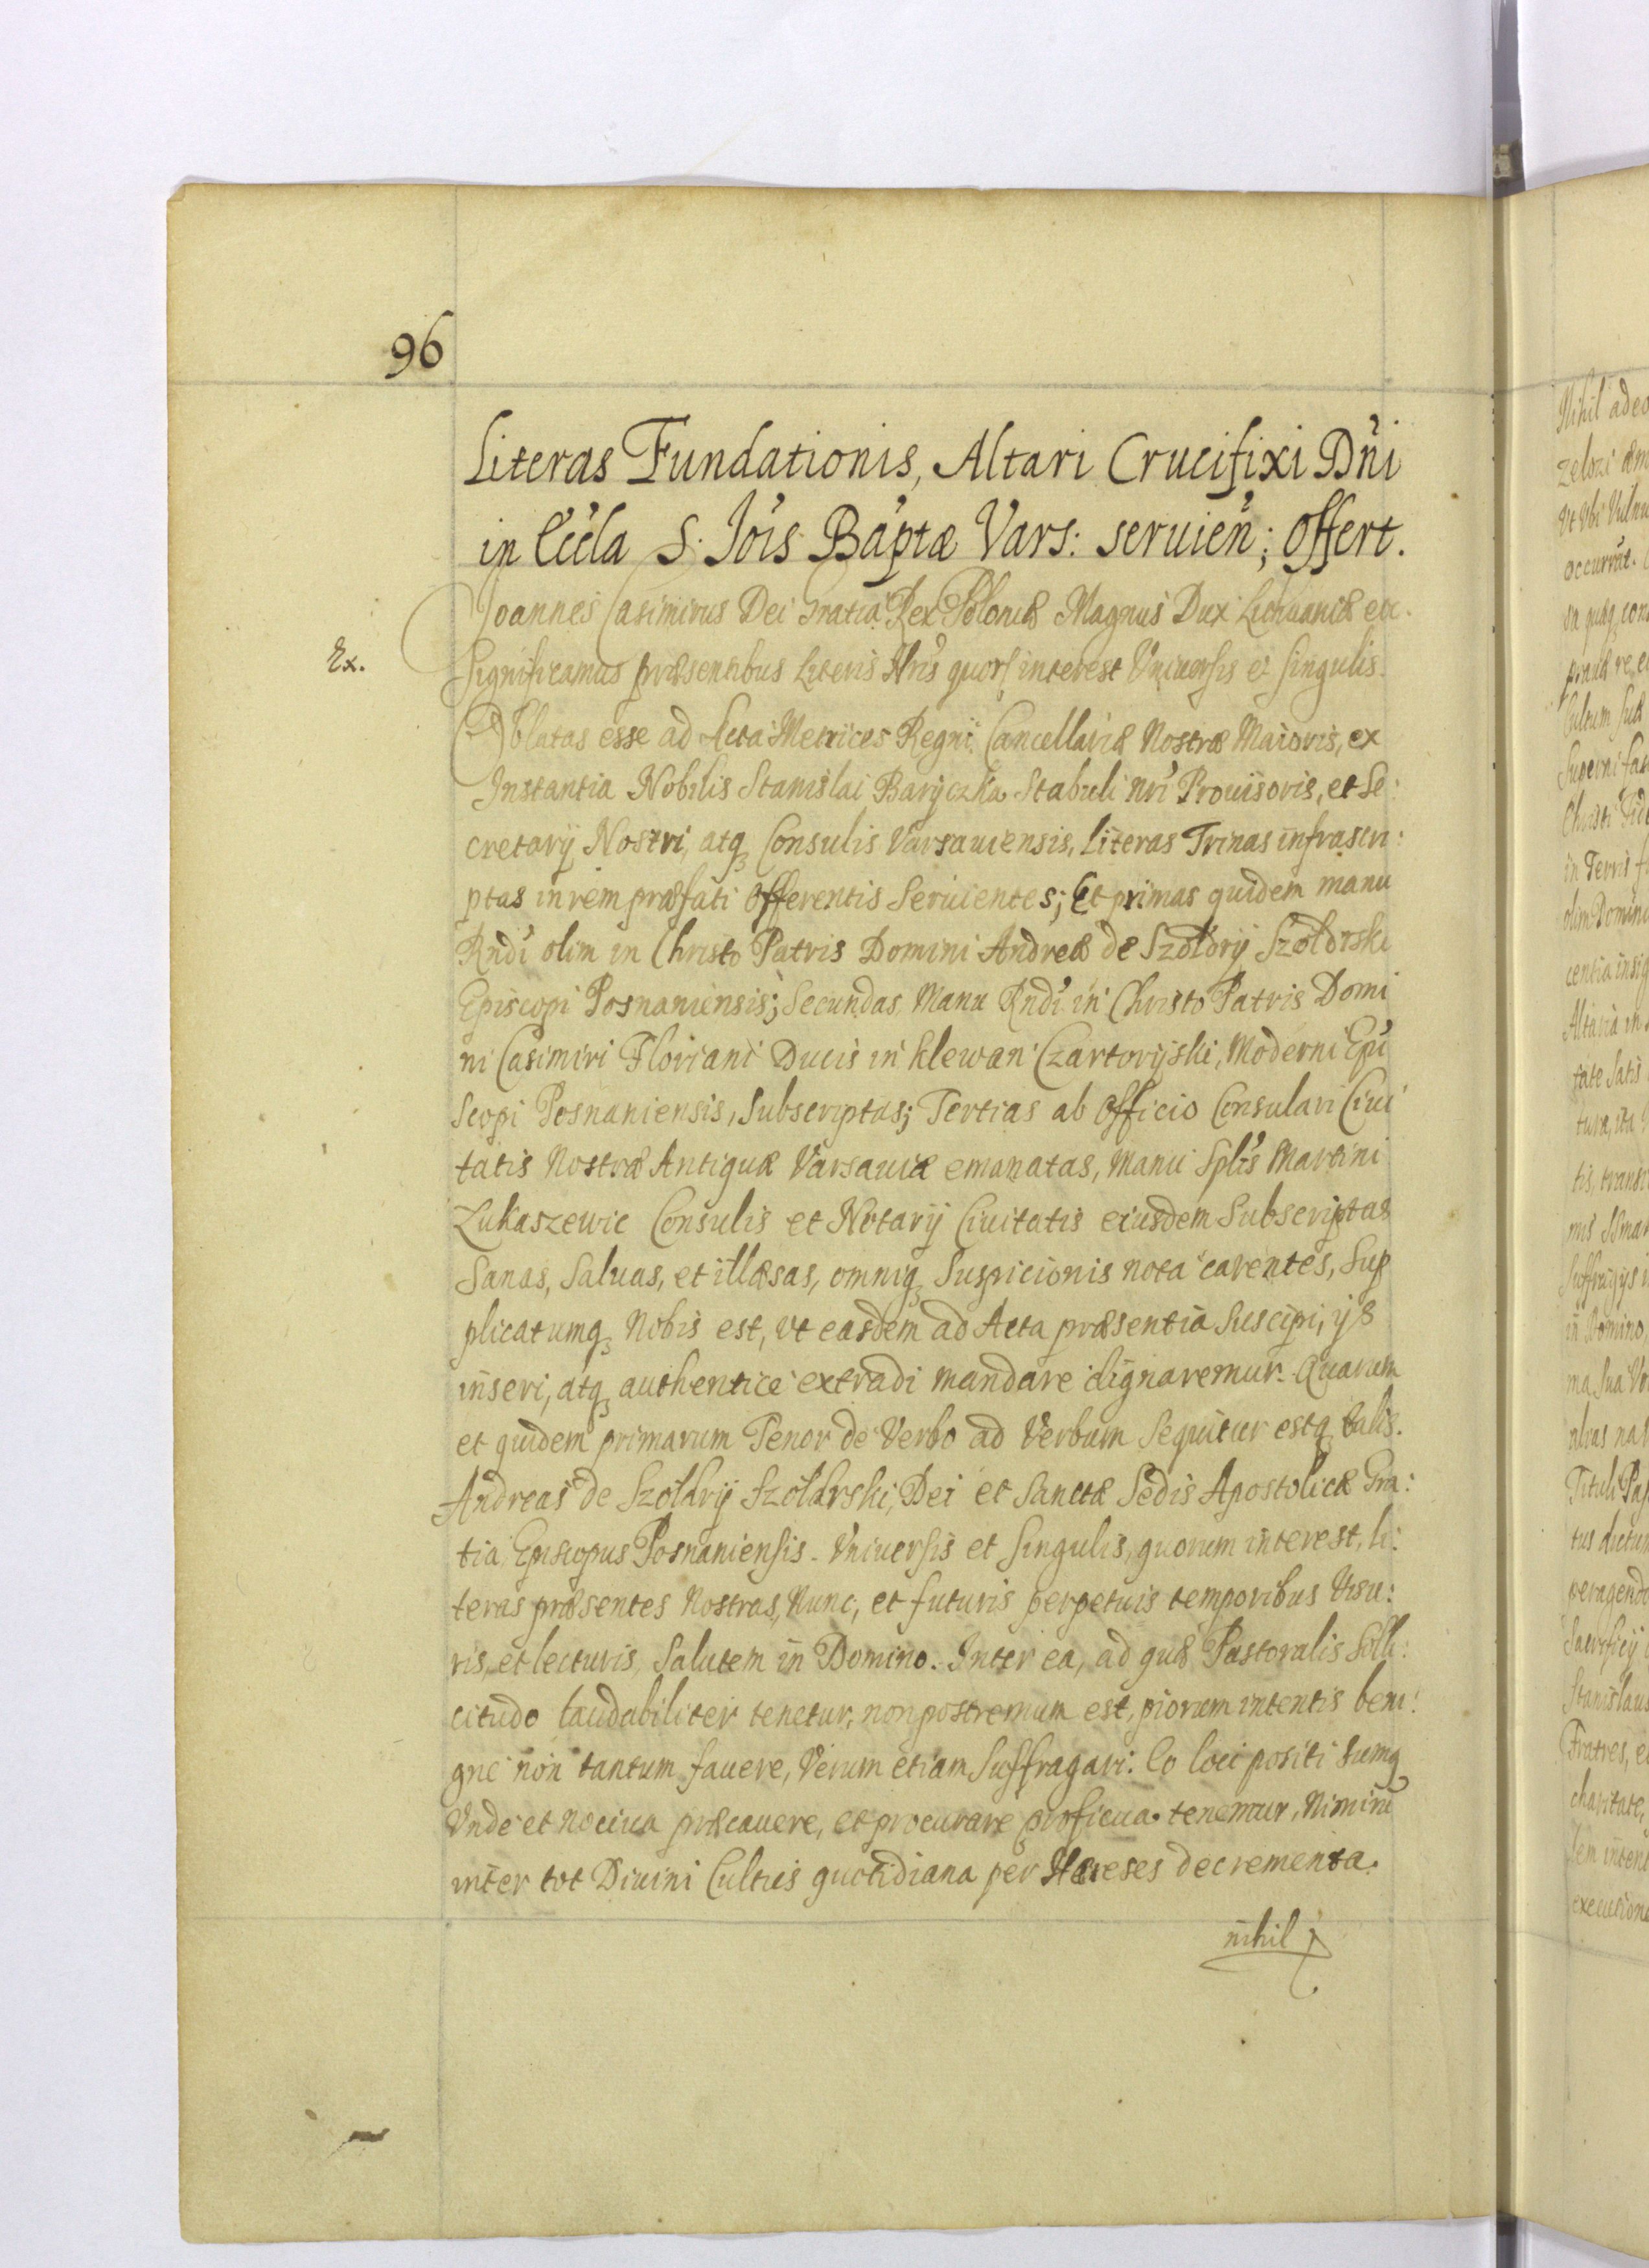 96
Literas Fundationis, Altari Crucifixi Dn̉i
in Ec̉c̉la S. Jo̓is Ba̓ptæ Vars: seruien̉; offert.
Joannes Casimirus Dei Gratia Rex Poloniæ Magnus Dux Lithuaniæ etc.
Ex.
Significamus præsentibus Literis Nr̃is quor interest Vniuersis et singulis.
Oblatas esse ad Acta Metrices Regni Cancellariæ Nostræ Maioris, ex
Instantia Nobilis Stanislai Baryczka Stabuli nr̃i Prouisoris, et Se:
cretarij Nostri, atq Consulis Varsauiensis, literas Trinas infrascri:
ptas in rem præfati Offerentis Seruientes; Et primas quidem manu
Rndi olim in Christo Patris Domini Andreæ de Szołdry Szołdrski
Episcopi Posnaniensis; Secundas Manu Rndi in Christo Patris Domi
ni Casimiri Floriani Ducis in Klewan Czartoryski, Moderni Epi
scopi Posnaniensis, Subscriptas; Tertias ab Officio Consulari Ciui
tatis Nostræ Antiquæ Varsauiæ emanatas, Manu Splis Martini
Lukaszewic Consulis et Notarij Ciuitatis eiusdem Subscriptas
Sanas, Saluas, et illæsas, omniq Suspicionis nota carentes, Sup
plicatumq Nobis est, vt easdem ad Acta præsentia Suscipi, ijs
inseri, atq authentice extradi mandare dignaremur. Quarum
et quidem primarum Tenor de Verbo ad Verbum Sequitur estq talis.
Andreas de Szołdry Szołdrski, Dei et Sanctæ Sedis Apostolicæ Gra:
tia Episcopus Posnaniensis. Vniuersis et Singulis, quorum interest, li:
teras præsentes Nostras, Nunc, et futuris perpetuis temporibus Visu:
ris, et lecturis, Salutem in Domino. Inter ea, ad quæ Pastoralis Solli:
citudo laudabiliter tenetur, non postremum est, piorum intentis beni:
gne non tantum fauere, Verum etiam Suffragari. Eo loci positi sumq
Vnde et nociua præcauere, et procurare proficua tenemur, Nimiru
inter tot Diuini Cultus quotidiana per Hæreses decrementa.
nihil